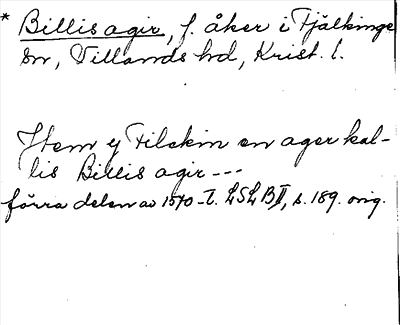 * Billis agir, f. åker i Fjälkinge
sn, Villands hd, Krist. l.
Item y Filckin en ager kal-
lis Billis agir ---
förra delen av 1540-t. LSLB II, s. 189. orig.